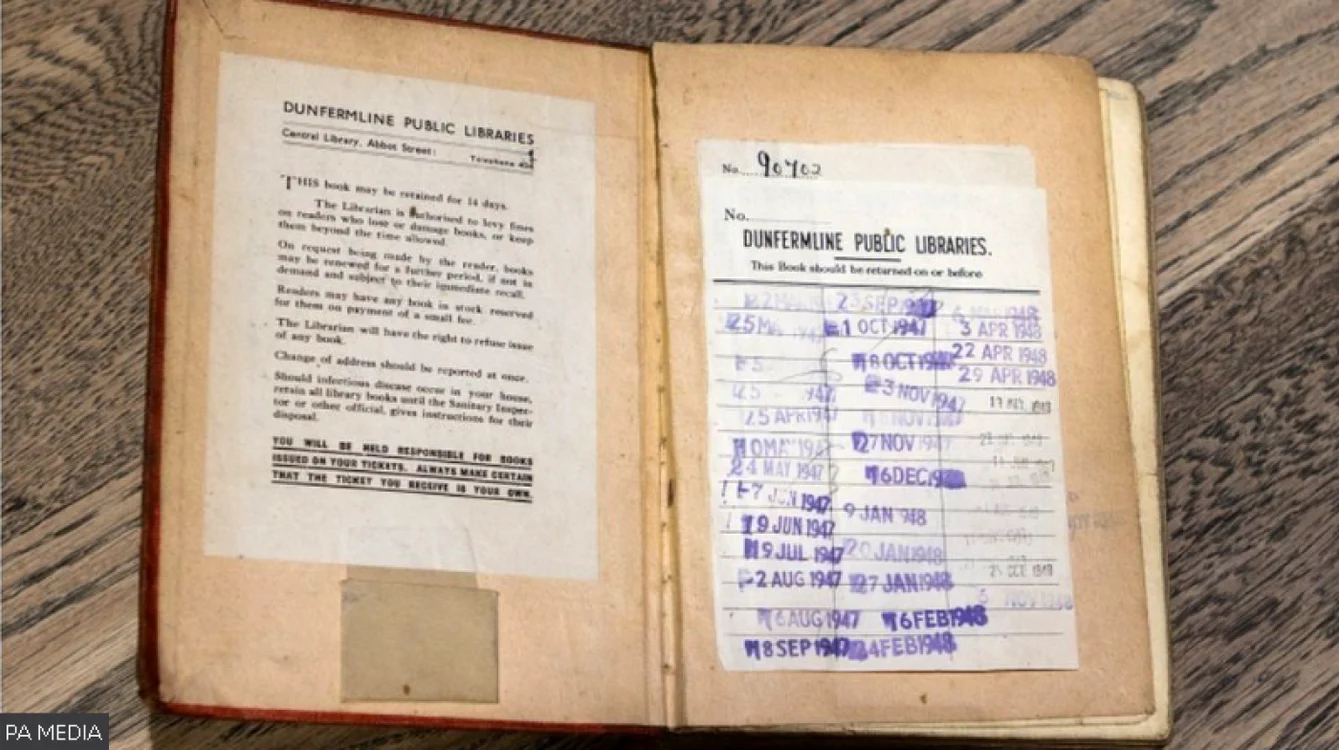 DUNFERMLINE PUBLIC LIBRARIES
Central Library, Abbot Street: Telephone
THIS book may be retained for 14 days.
The Librarian is authorised to levy fines
on readers who lose or damage books, or keep
them beyond the time allowed.
On request being made by the reader, books
may be renewed for a further period, if not in
demand and subject to their immediate recall.
Readers may have any book in stock reserved
for them on payment of a small fee.
The Librarian will have the right to refuse issue
of any book.
Change of address should be reported at once.
Should infectious disease occur in your house,
retain all library books until the Sanitary Inspec-
tor or other official, gives instructions for their
disposal.
YOU WILL BE HELD RESPONSIBLE FOR BOOKS
ISSUED ON YOUR TICKETS. ALWAYS MAKE CERTAIN
THAT THE TICKET YOU RECEIVE IS YOUR OWN.
No. 90702
No.
DUNFERMLINE PUBLIC LIBRARIES.
This Book should be returned on or before
25 APR 1947
MAY 1947
24 MAY 1947
7 JUN 1947
19 JUN 1947
9 JUL 1947
2 AUG 1947
6 AUG 1947
8 SEP 1947
23 SEP
1 OCT 1947
8 OCT
3 NOV 1947
27 NOV 1947
6 DEC
9 JAN 948
20 JAN 1948
27 JAN 1948
6 FEB 1948
24 FEB 1948
3 APR 1948
22 APR 1948
29 APR 1948
NOV 1948
PA MEDIA